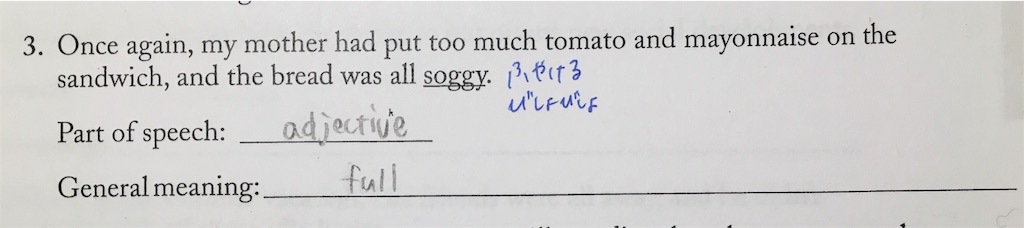 3. Once again, my mother had put too much tomato and mayonnaise on the
sandwich, and the bread was all soggy. ふやける
びしょびしょ
Part of speech: adjective
General meaning: full